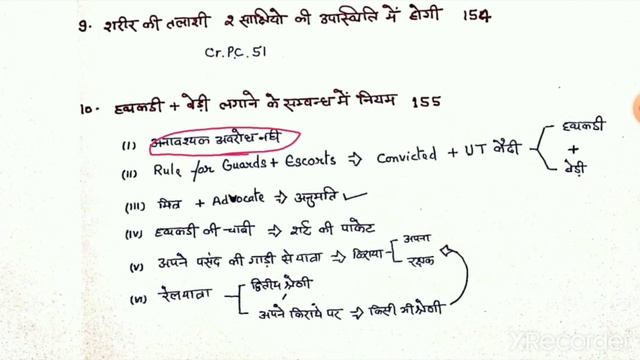 9. शरीर की तलाशी २ साक्षियो की उपस्थिति में होगी 154
Cr.P.C. 51
10. हथकडी + बेड़ी लगाने के सम्बन्ध में नियम 155
(I) अनावश्यक अवरोध नही
(II) Rule for Guards + Escorts ⇒ Convicted + UT कैदी हथकडी + बेड़ी
(III) मित्र + Advocate ⇒ अनुमति ✓
(IV) हथकडी की चाबी ⇒ शर्ट की पाकेट
(V) अपने पसंद की गाड़ी से यात्रा ⇒ किराया अपना रक्षक
(VI) रेलयात्रा द्वितीय श्रेणी
अपने किराये पर ⇒ किसी भी श्रेणी
XRecorder